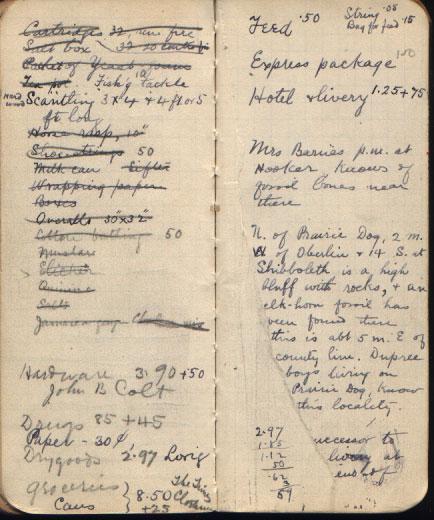 Cartridges 32, rim fire
Salt box 32 50 cartridges
Packet of Yeast
Tea pot Fish'g tackle
Scantling 3x4 & 4 ft or 5
ft long
Horse rasp, 10"
Shoestrings 50
Milk can Sifter
Wrapping paper
Boxes
Overalls 30"x32"
Cotton batting 50
Mustard
Slicker
Quinine
Salts
Jamaica ging
Hardware 3.90 + 50
John B Colt
Drugs 85 + 45
Paper - 30¢
Drygoods 2.97 Lovig
Groceries
Cans 8.50 The Fines
+25
Feed .50 String .05
Bag for feed .15
Express package .50
Hotel & livery 1.25 + 75
Mrs Barnes p.m. at
Hooker knows of
fossil bones near
there
N. of Prairie Dog, 2 m.
W of Oberlin & 14 S. at
Shibboleth is a high
bluff with rocks, & an
elk-horn fossil has
been found there
this is abt 5 m. E of
county line. Dupree
boys living on
Prairie Dog, know
this locality.
2.97
1.85
1.12
50
.62
3
59
uccessor to
livery at
end of